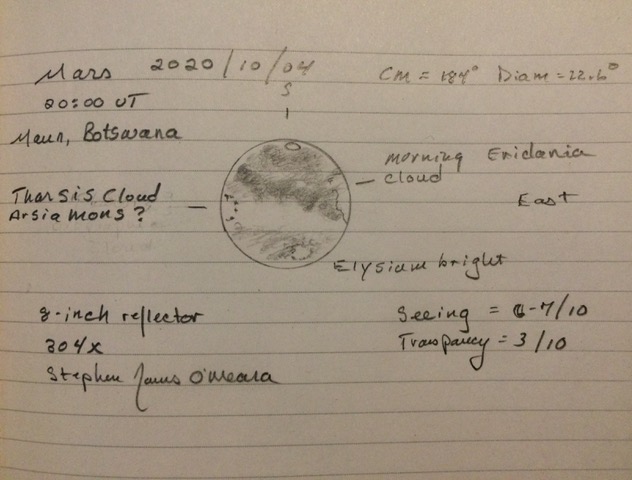 Mars 2020/10/04
S
CM = 184° Diam = 22.6°
20:00 UT
Maun, Botswana
morning Eridania
cloud
East
Tharsis Cloud
Arsia mons?
Elysium bright
8-inch reflector
304x
Stephen James O'Meara
Seeing = 6-7/10
Transparency = 3/10